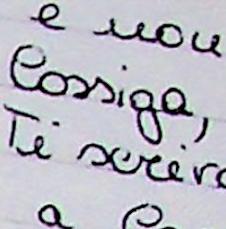 e non
Cossiga,
Ti scrivo
a